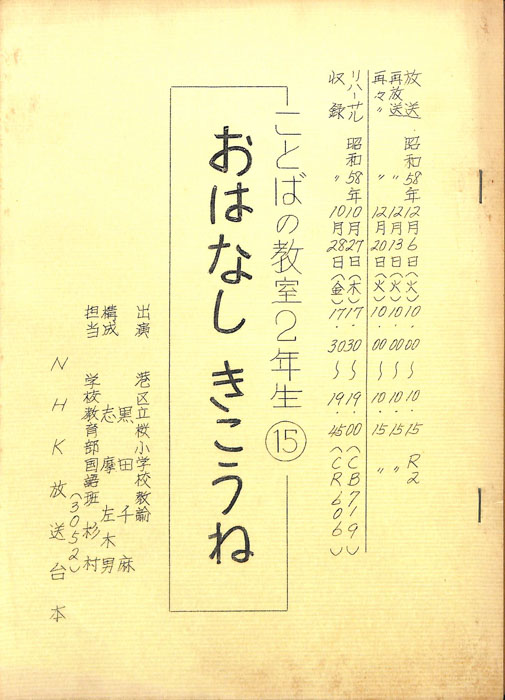 放送 昭和58年12月6日(火)10.00〜10.15 R2
再放送 〃 12月13日(火)10.00〜10.15 〃
再々〃 〃 12月20日(火)10.00〜10.15 〃
リハーサル 昭和58年10月27日(木)17.30〜19.00(CB719)
収録 〃 10月28日(金)17.30〜19.45(CR606)
ことばの教室2年生⑮
おはなしきこうね
出演 港区立桜小学校教諭
黒田千麻
構成 志摩左木男
担当 学校教育部国語班 杉村
(3052)
NHK放送台本